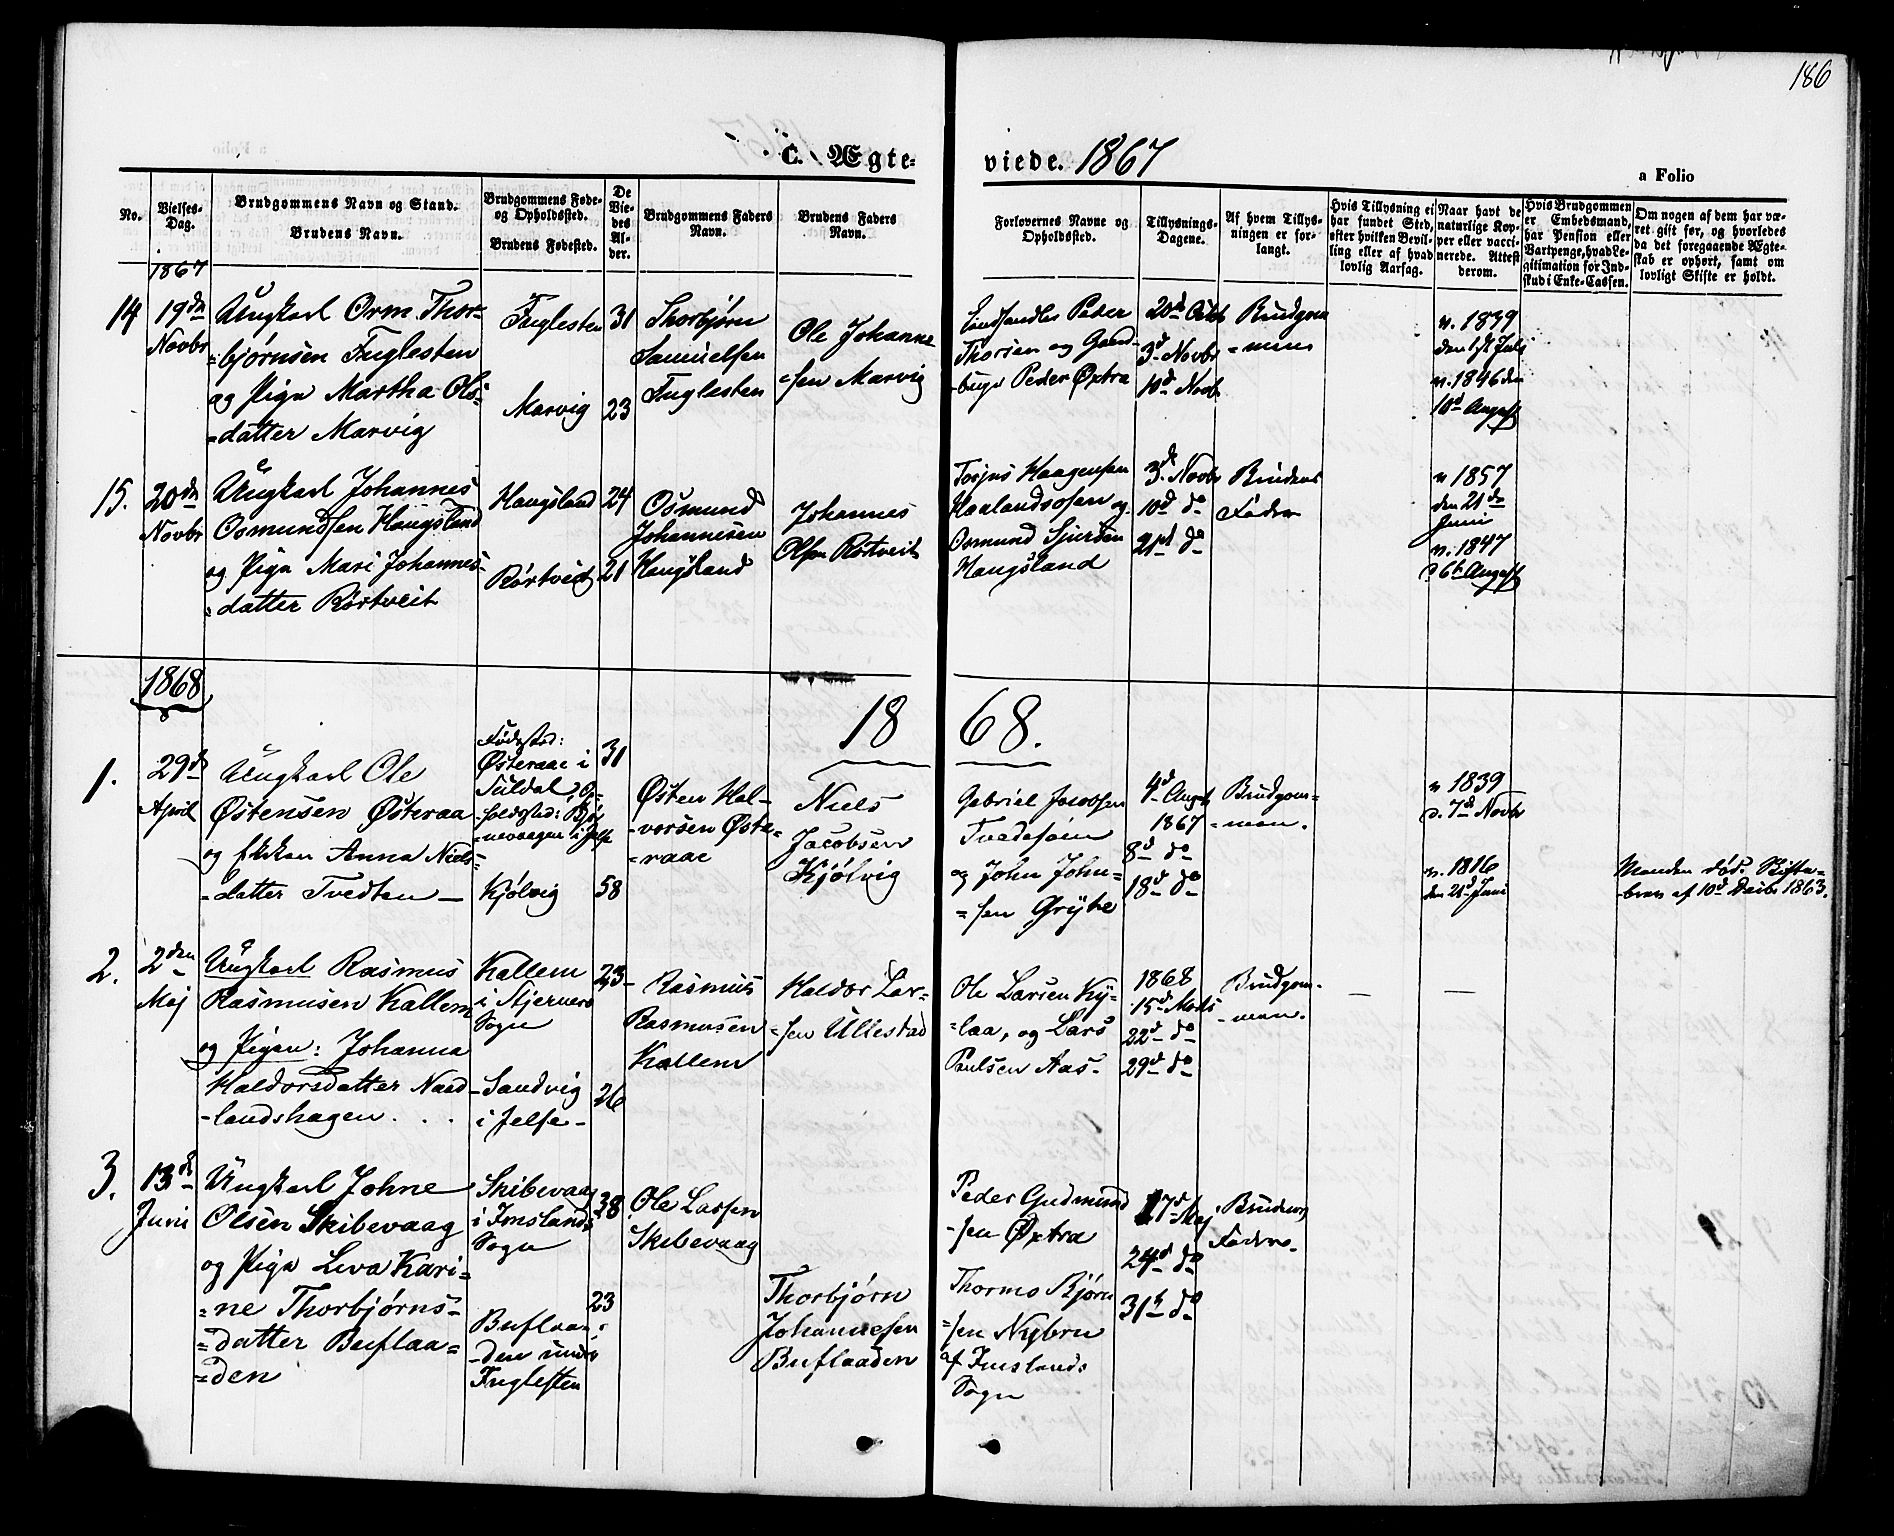 186
C. Ægte-
viede. 1867
a Folio
No.
Vielses-
Dag.
Brudgommens Navn og Stand.
Brudens Navn.
Brudgommens Føde-
og Opholdssted.
Brudens Fødested.
De
Vie-
des
Al-
der.
Brudgommens Faders
Navn.
Brudens Faders
Navn.
Forlovernes Navne og
Opholdssted.
Tillysnings-
Dagene.
Af hvem Tillys-
ningen er for-
langt.
Hvis Tillysning ei
har fundet Sted,
efter hvilken Bevil-
ling eller af hvad
lovlig Aarsag.
Naar havt de
naturlige Kop-
per eller vacci-
nerede. Attest
derom.
Hvis Brudgommen
er Embedsmand,
har Pension eller
Vartpenge, hvad Le-
gitimation for Ind-
skud i Enke-Cassen.
Om nogen af dem har væ-
ret gift før, og hvorledes
da det foregaaende Ægte-
skab er ophørt, samt om
lovligt Skifte er holdt.
1867
14
19de
Novbr
Ungkarl Orm Thor-
=bjørnsen Fuglesten
og Pige Martha Ols-
=datter Marvig
Fuglesten
Marvig
31
23
Thorbjørn
Samuelsen
Fuglesten
Ole Johanne
=sen Marvig
Peder
Thorsen og Gaard-
-bruger Peder Øxtra
20de Octbr
3d Novbr
10d Novb
Brudgom
=men
v. 1839
den 1ste Juli
v. 1846 den
10d August
15.
20de
Novbr
Ungkarl Johannes
Osmundsen Haugsland
og Pige Mari Johannes-
=datter Rørtveit
Haugsland
Rørtveid
24
21
Osmund
Johannesen
Haugsland
Johannes
Olsen Rørtveit
Torjus Haagensen
Haalandsosen og
Osmund Sjursen
Haugsland
3d Novbr
10d do
21st do
Brudens
Fader
v 1857
den 21de
Juni
v. 1847
d 6te August
1868
18 68.
1.
29de
April
Ungkarl Ole
Østensen Østeraa
og Enken Anna Niels-
=datter Tvedten
Fødested:
Østeraae i
Suldal, Op-
holdssted: Bjør
=nevaagen i Jelse
Kjølvig
31
58
Østen Hal-
-vorsen Øste-
=raae
Niels
Jacobsen
Kjølvig
Gabriel Jacobsen
Tvedesøin
og John John-
=sen Grytte
4d Augst
1867
8d do
18d do
Brudgom-
=men.
v 1839
d. 7de Novbr
v. 1816
den 21d Juni
Manden død. Skifte-
brev af 10d Decbr 1863.
2.
2den
Mej
Ungkarl Rasmus
Rasmusen Kallem
og Pigen: Johanna
Haldorsdatter Naed
-landshagen . . .
Kallem
i Stjernerø
Sogn
Sandvig
i Jelse
23
26
Rasmus
Rasmusen
Kallem
Haldor Lar-
=sen Ullestad
Ole Larsen Ky-
-laa, og Lars
Paulsen Aas
1868
15d Mats
22d do
29d do
Brudgom-
-men.
—
—
3.
13de
Juni
Ungkarl Johne
Olsen Skibevaag
og Pige Leva Kari-
=ne Thorbjørns-
=datter Buflaa=
=den
Skibevaag
i Imslands
Sogn
Buflaa-
-den under
Fuglesten
38
23
Ole Larsen
Skibevaag
Thorbjørn
Johannesen
Buflaaden
Peder Gudmund
-sen Øxtra
Thormo Bjørn
=sen Nybru
af Imslands
Sogn
17d Mej
24d do
31te do
Brudens
Fader.